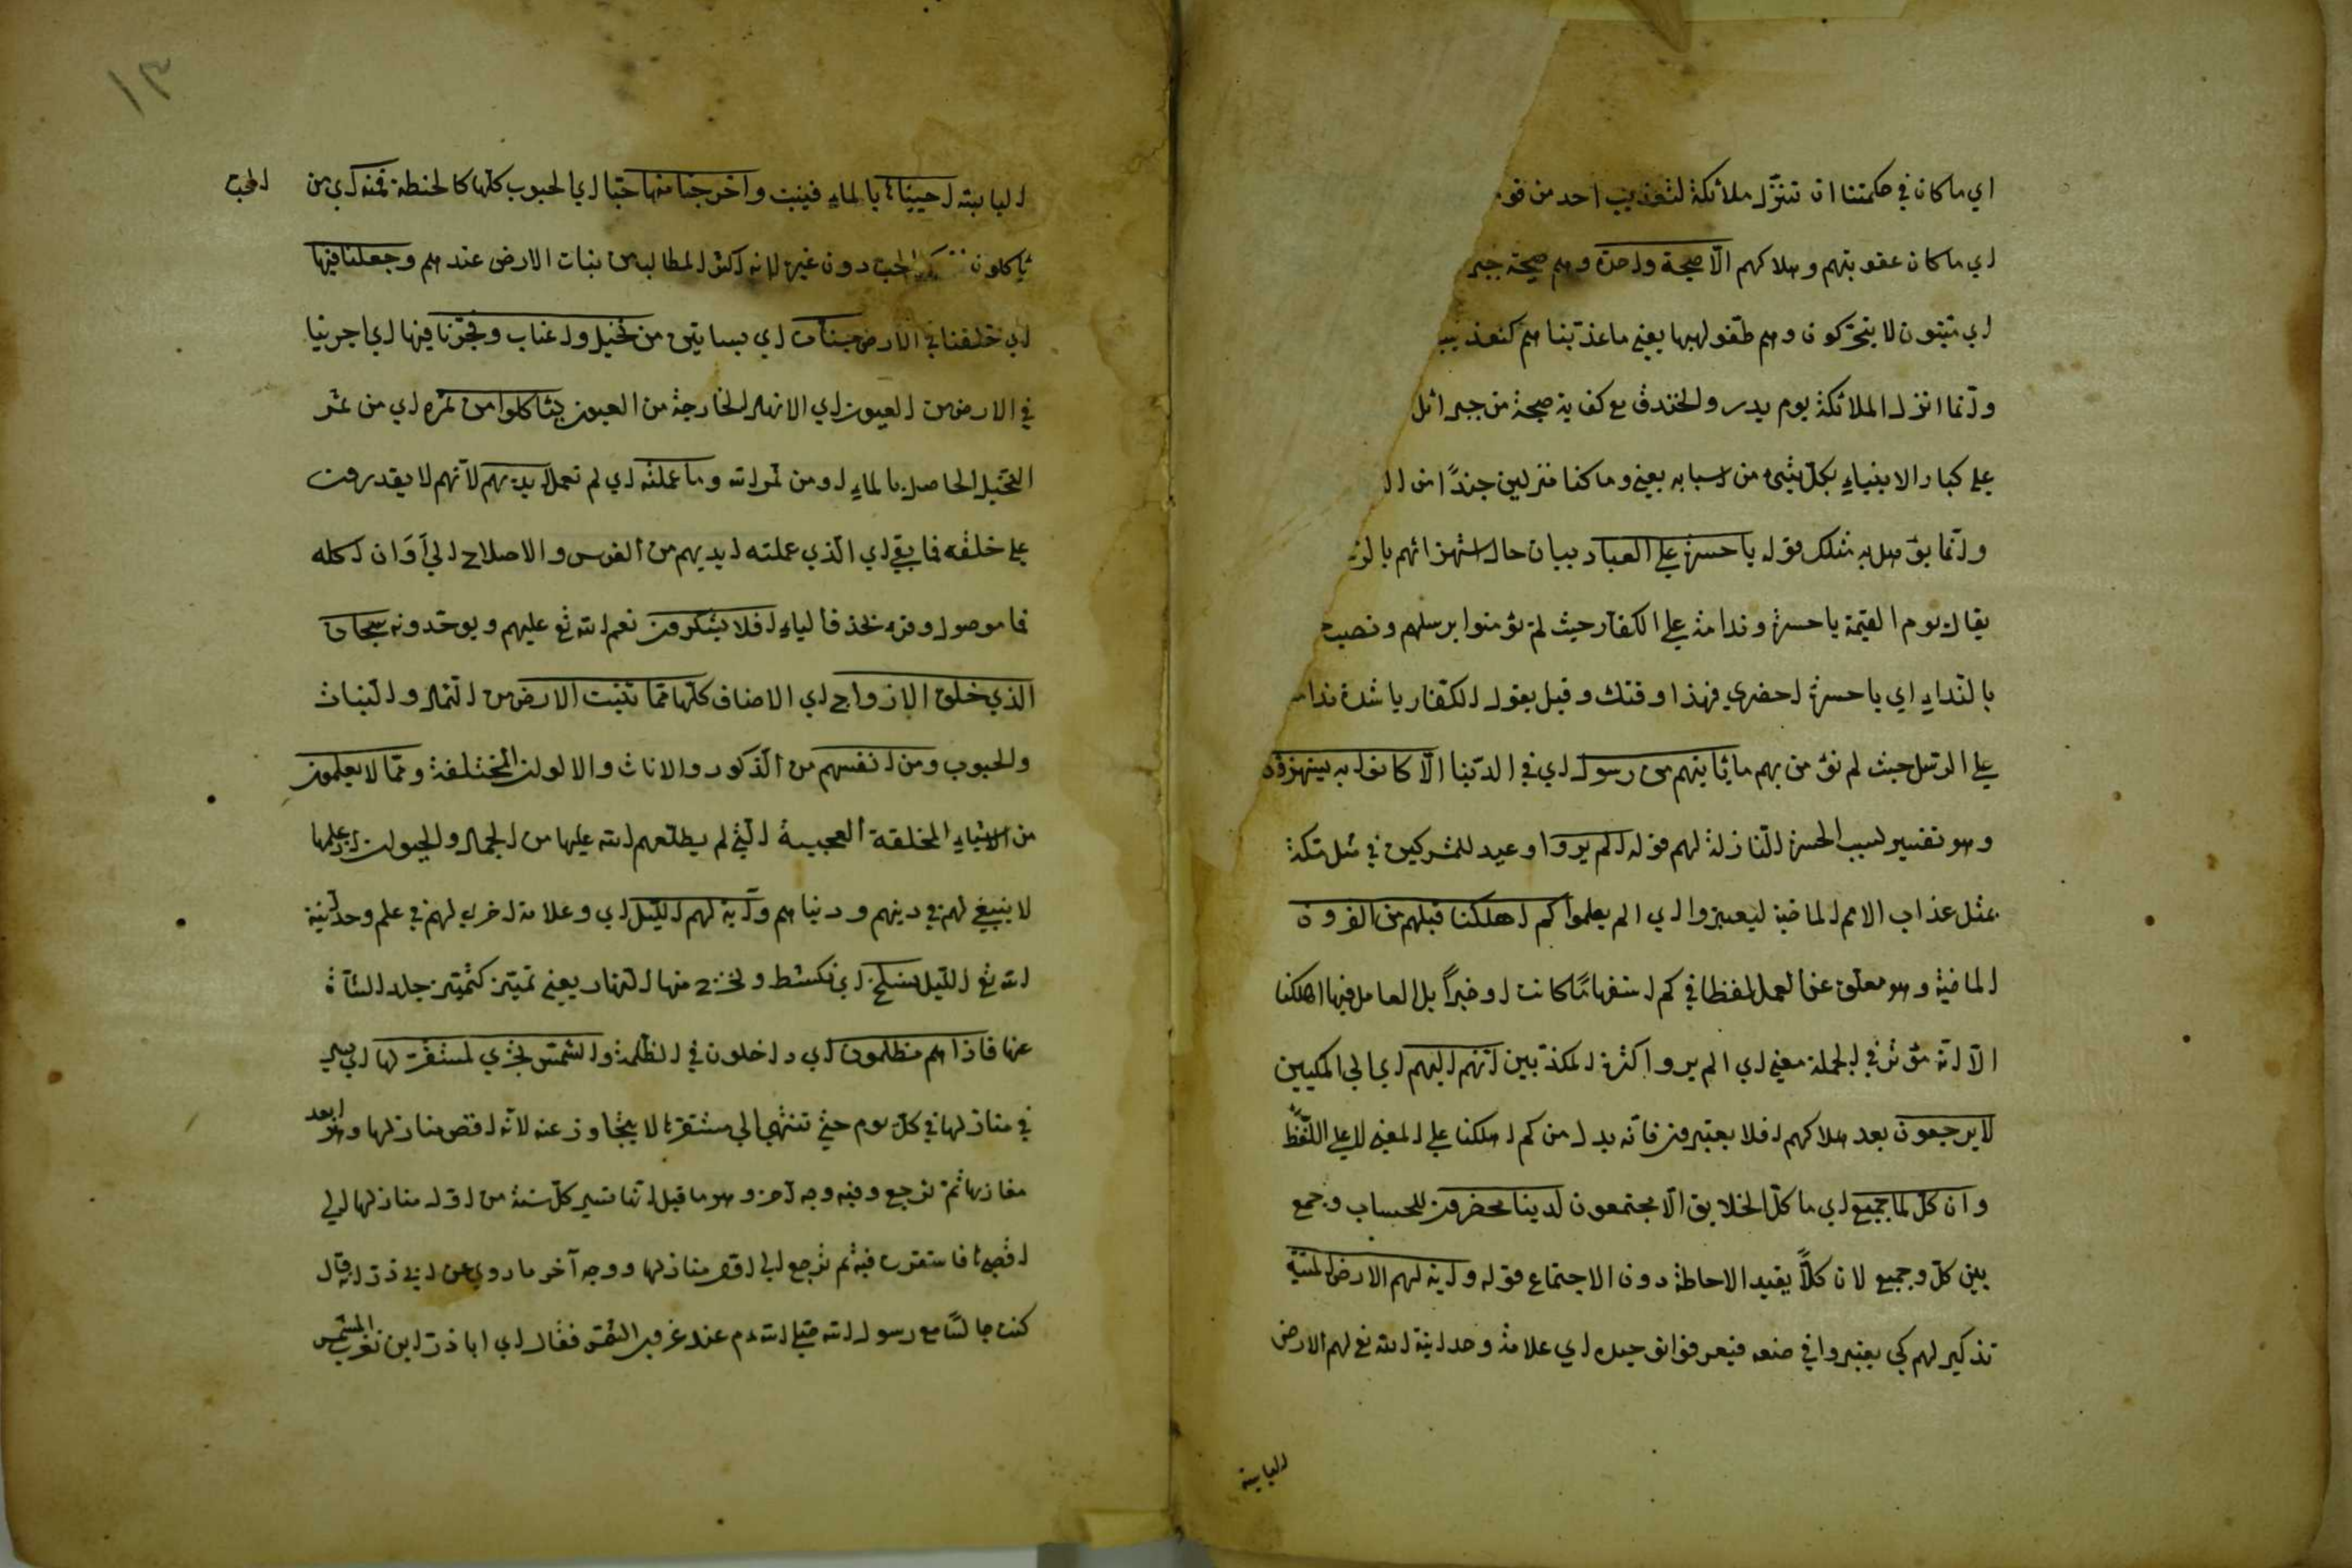 اي ما كان في حكمتنا ان تنزل ملائكة لتعذيب احد من قوم
اي ما كان عقوبتهم وهلاكهم الا صيحة واحدة وهم صيحة جبر
اي ميتون لا يتحركون وهم طفو لهبها يعني ما عذبنا هم كتعذيب
وانما انزل الملائكة يوم بدر والخندق مع كفاية صيحة من جبرائل
على كبار الانبياء بكل شيء من اسبابه يعني وما كنا منزلين جندا من ال
وانما يؤهل به مثلك قوله يا حسرة على العباد بيان حال استهزائهم بالر
يقال يوم القيمة يا حسرة وندامة على الكفار حيث لم يؤمنوا برسلهم ونصب
بالنداء اي يا حسرة احضري فهذا وقتك وقيل يقول الكفار يا شدة ندام
على الرسل حيث لم نؤمن بهم ما يأتيهم من رسول اي في الدنيا الا كانوا به يستهزؤن
وهو تفسير لسبب الحسرة النازلة لهم قوله الم يروا وعيد للمشركين في مثل مكة
بمثل عذاب الامم الماضية ليعتبروا اي الم يعلموا كم اهلكنا قبلهم من القرون
الماضية وهو معلق عن العمل لفظا في كم استفهاما كانت او خبرا بل العامل فيها اهلكنا
الا انه مؤثر في الجملة معنى اي الم يروا كثرة المكذبين انهم اليهم اي الى المكيين
لا يرجعون بعد هلاكهم افلا يعتبرون فانه بدل من كم اهلكنا على المعنى لا على اللفظ
وان كل لما جميع اي ما كل الخلايق الا مجتمعون لدينا محضرون للحساب وجمع
بين كل وجميع لان كلا يفيد الاحاطة دون الاجتماع قوله واية لهم الارض الميتة
تذكير لهم كي يعتبروا في صنعه فيعرفوا توحيده اي علامة وحدانية الله تع لهم الارض
اليابسة
١٣
اليابسة احييناها بالماء فينبت واخرجنا منها حبا اي الحبوب كلها كالحنطة فمنه اي من الحب
يأكلون الحب دون غيره لانه اكثر المطالب من نبات الارض عندهم وجعلنا فيها
اي خلقنا في الارض جنات اي بساتين من نخيل واعناب وفجرنا فيها اي اجرينا
في الارض من العيون اي الانهار الخارجة من العيون ليأكلوا من ثمره اي من ثمر
النخيل الحاصل بالماء او من ثمرات الله وما عملته اي لم تعمل ايديهم لانهم لا يقدرون
على خلقه فما بقي اي الذي عملته ايديهم من الغرس والاصلاح الى اوان اكله
فما موصول وقرء بحذف الهاء افلا يشكرون نعم الله تع عليهم ويوحدونه سبحان
الذي خلق الازواج اي الاصناف كلها مما تنبت الارض من الثمار والنبات
والحبوب ومن انفسهم من الذكور والاناث والالوان المختلفة ومما لا يعلمون
من الاشياء المخلقة العجيبة التي لم يطلعهم الله عليها من الجمال والحيوان اذ علمها
لا ينبغي لهم في دينهم ودنياهم وآية لهم الليل اي وعلامة اخرى لهم في علم وحدانية
الله تع الليل نسلخ اي نكشط ونخرج منها النهار يعني تميز كتميز جلد الشاة
عنها فاذا هم مظلمون اي داخلون في الظلمة والشمس تجري لمستقر لها اي تسير
في منازلها في كل يوم حتى تنتهي الى مستقرها لا يتجاوز عنه لانه اقصى منازلها وهو ابعد
مغاربها ثم ترجع وفيه وجه آخر وهو ما قيل انها تسير كل سنة من اول منازلها الى
اقصاها فاستقرت فيه ثم ترجع الى اول منازلها ووجه آخر ما روي عن ابي ذر انه قال
كنت جالسا مع رسول الله صلى الله م عند غروب الشمس فقال اي ابا ذر اين تغرب الشمس